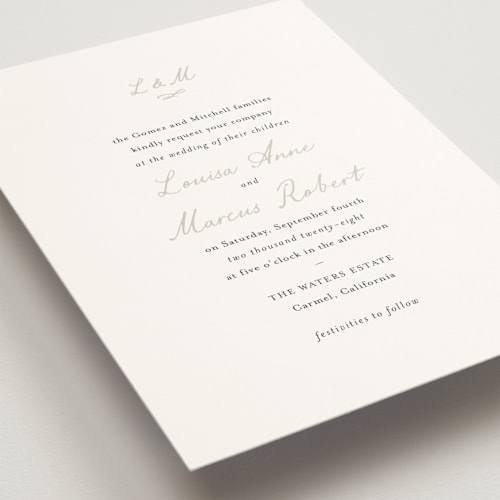 L & M
the Gomez and Mitchell families
kindly request your company
at the wedding of their children
Louisa Anne
and
Marcus Robert
on Saturday, September fourth
two thousand twenty-eight
at five o'clock in the afternoon
THE WATERS ESTATE
Carmel, California
festivities to follow